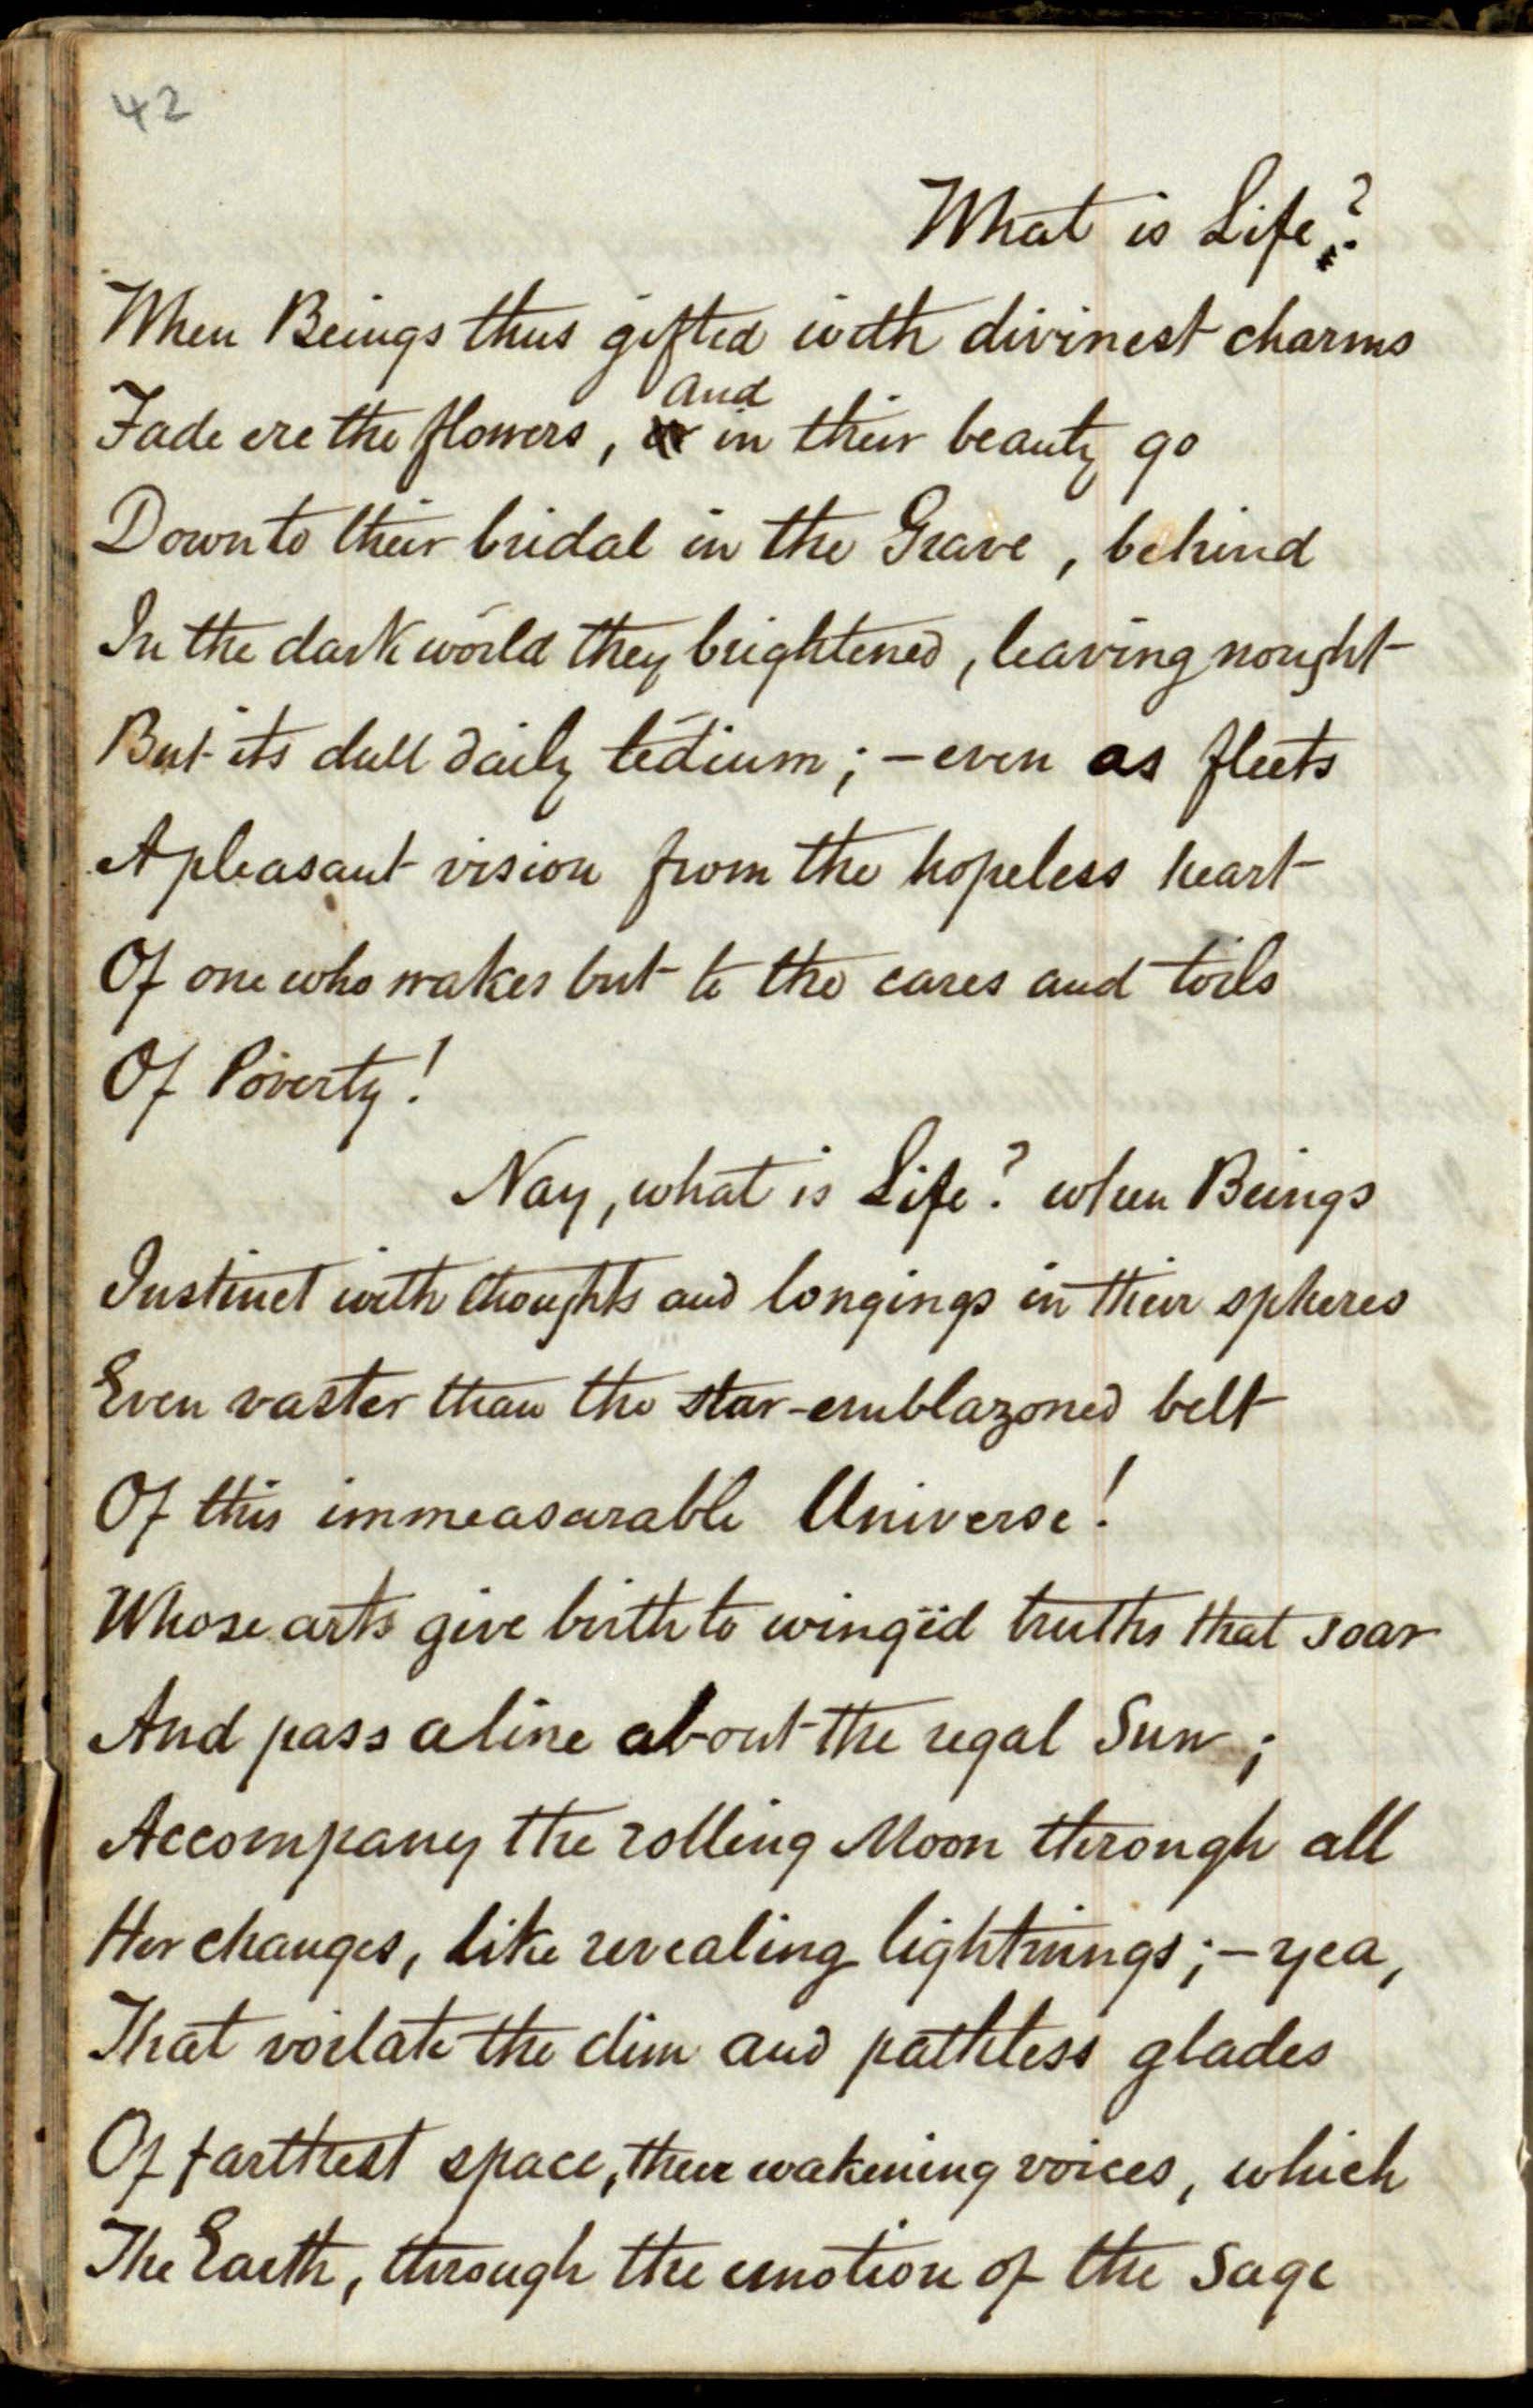 42
What is Life?
When Beings thus gifted with divinest charms
and
Fade ere the flowers, in their beauty go
Down to their bridal in the Grave, behind
In the dark world they brightened, leaving nought
But its dull daily tedium; — even as fleets
A pleasant vision from the hopeless heart
Of one who wakes but to the cares and toils
Of Poverty!
Nay, what is Life? when Beings
Instinct with thoughts and longings in their spheres
Even vaster than the star-emblazoned belt
Of this immeasurable Universe!
Whose arts give birth to wingëd truths that soar
And pass a line about the regal Sun;
Accompany the rolling Moon through all
Her changes, like revealing lightnings; — yea,
That voilate the dim and pathless glades
Of farthest space, their wakening voices, which
The Earth, through the emotion of the Sage